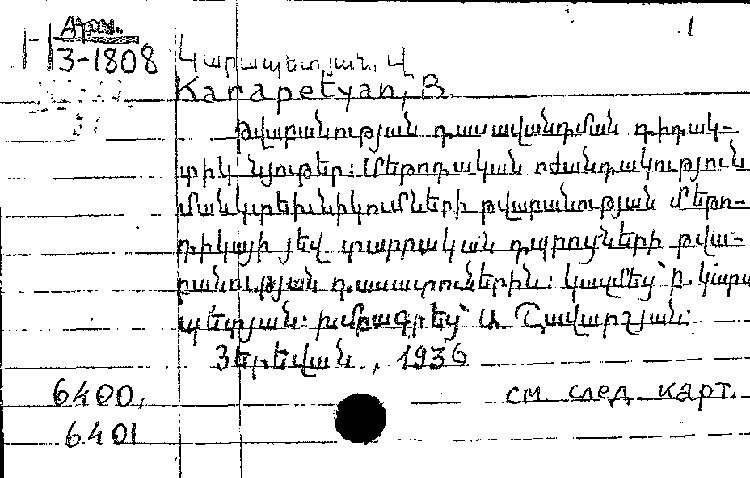 Арм.
3-1808
1
Կարապետյան, Վ
Karapetyan, B.
Թվաբանության դասավանդման դիդակ-
տիկ նյութեր: Մեթոդական ոժանդակություն
մանկտեխնիկումների թվաբանության մեթո-
դիկայի յեվ տարրական դպրոցների թվա-
բանության դասատուներին: Կազմեց՝ Բ. Կարա
պետյան: Խմբագրեց՝ Ա. Շավարշյան:
Յերեվան, 1936
6400,
6401
см. след. карт.